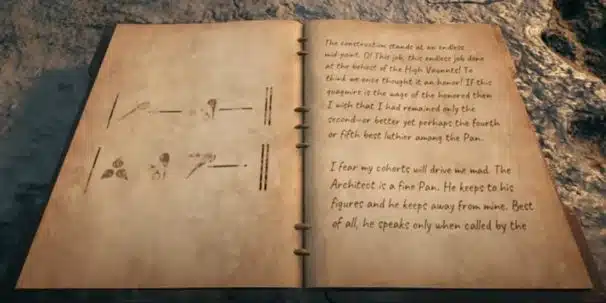 The construction stands at an endless
mid-point. O! This job, this endless job done
at the behest of the High Vaunats! To
think we once thought it an honor! If this
quagmire is the wage of the honored then
I wish that I had remained only the
second—or better yet perhaps the fourth
or fifth best luthier among the Pan.
I fear my cohorts will drive me mad. The
Architect is a fine Pan. He keeps to his
figures and he keeps away from mine. Best
of all, he speaks only when called by the